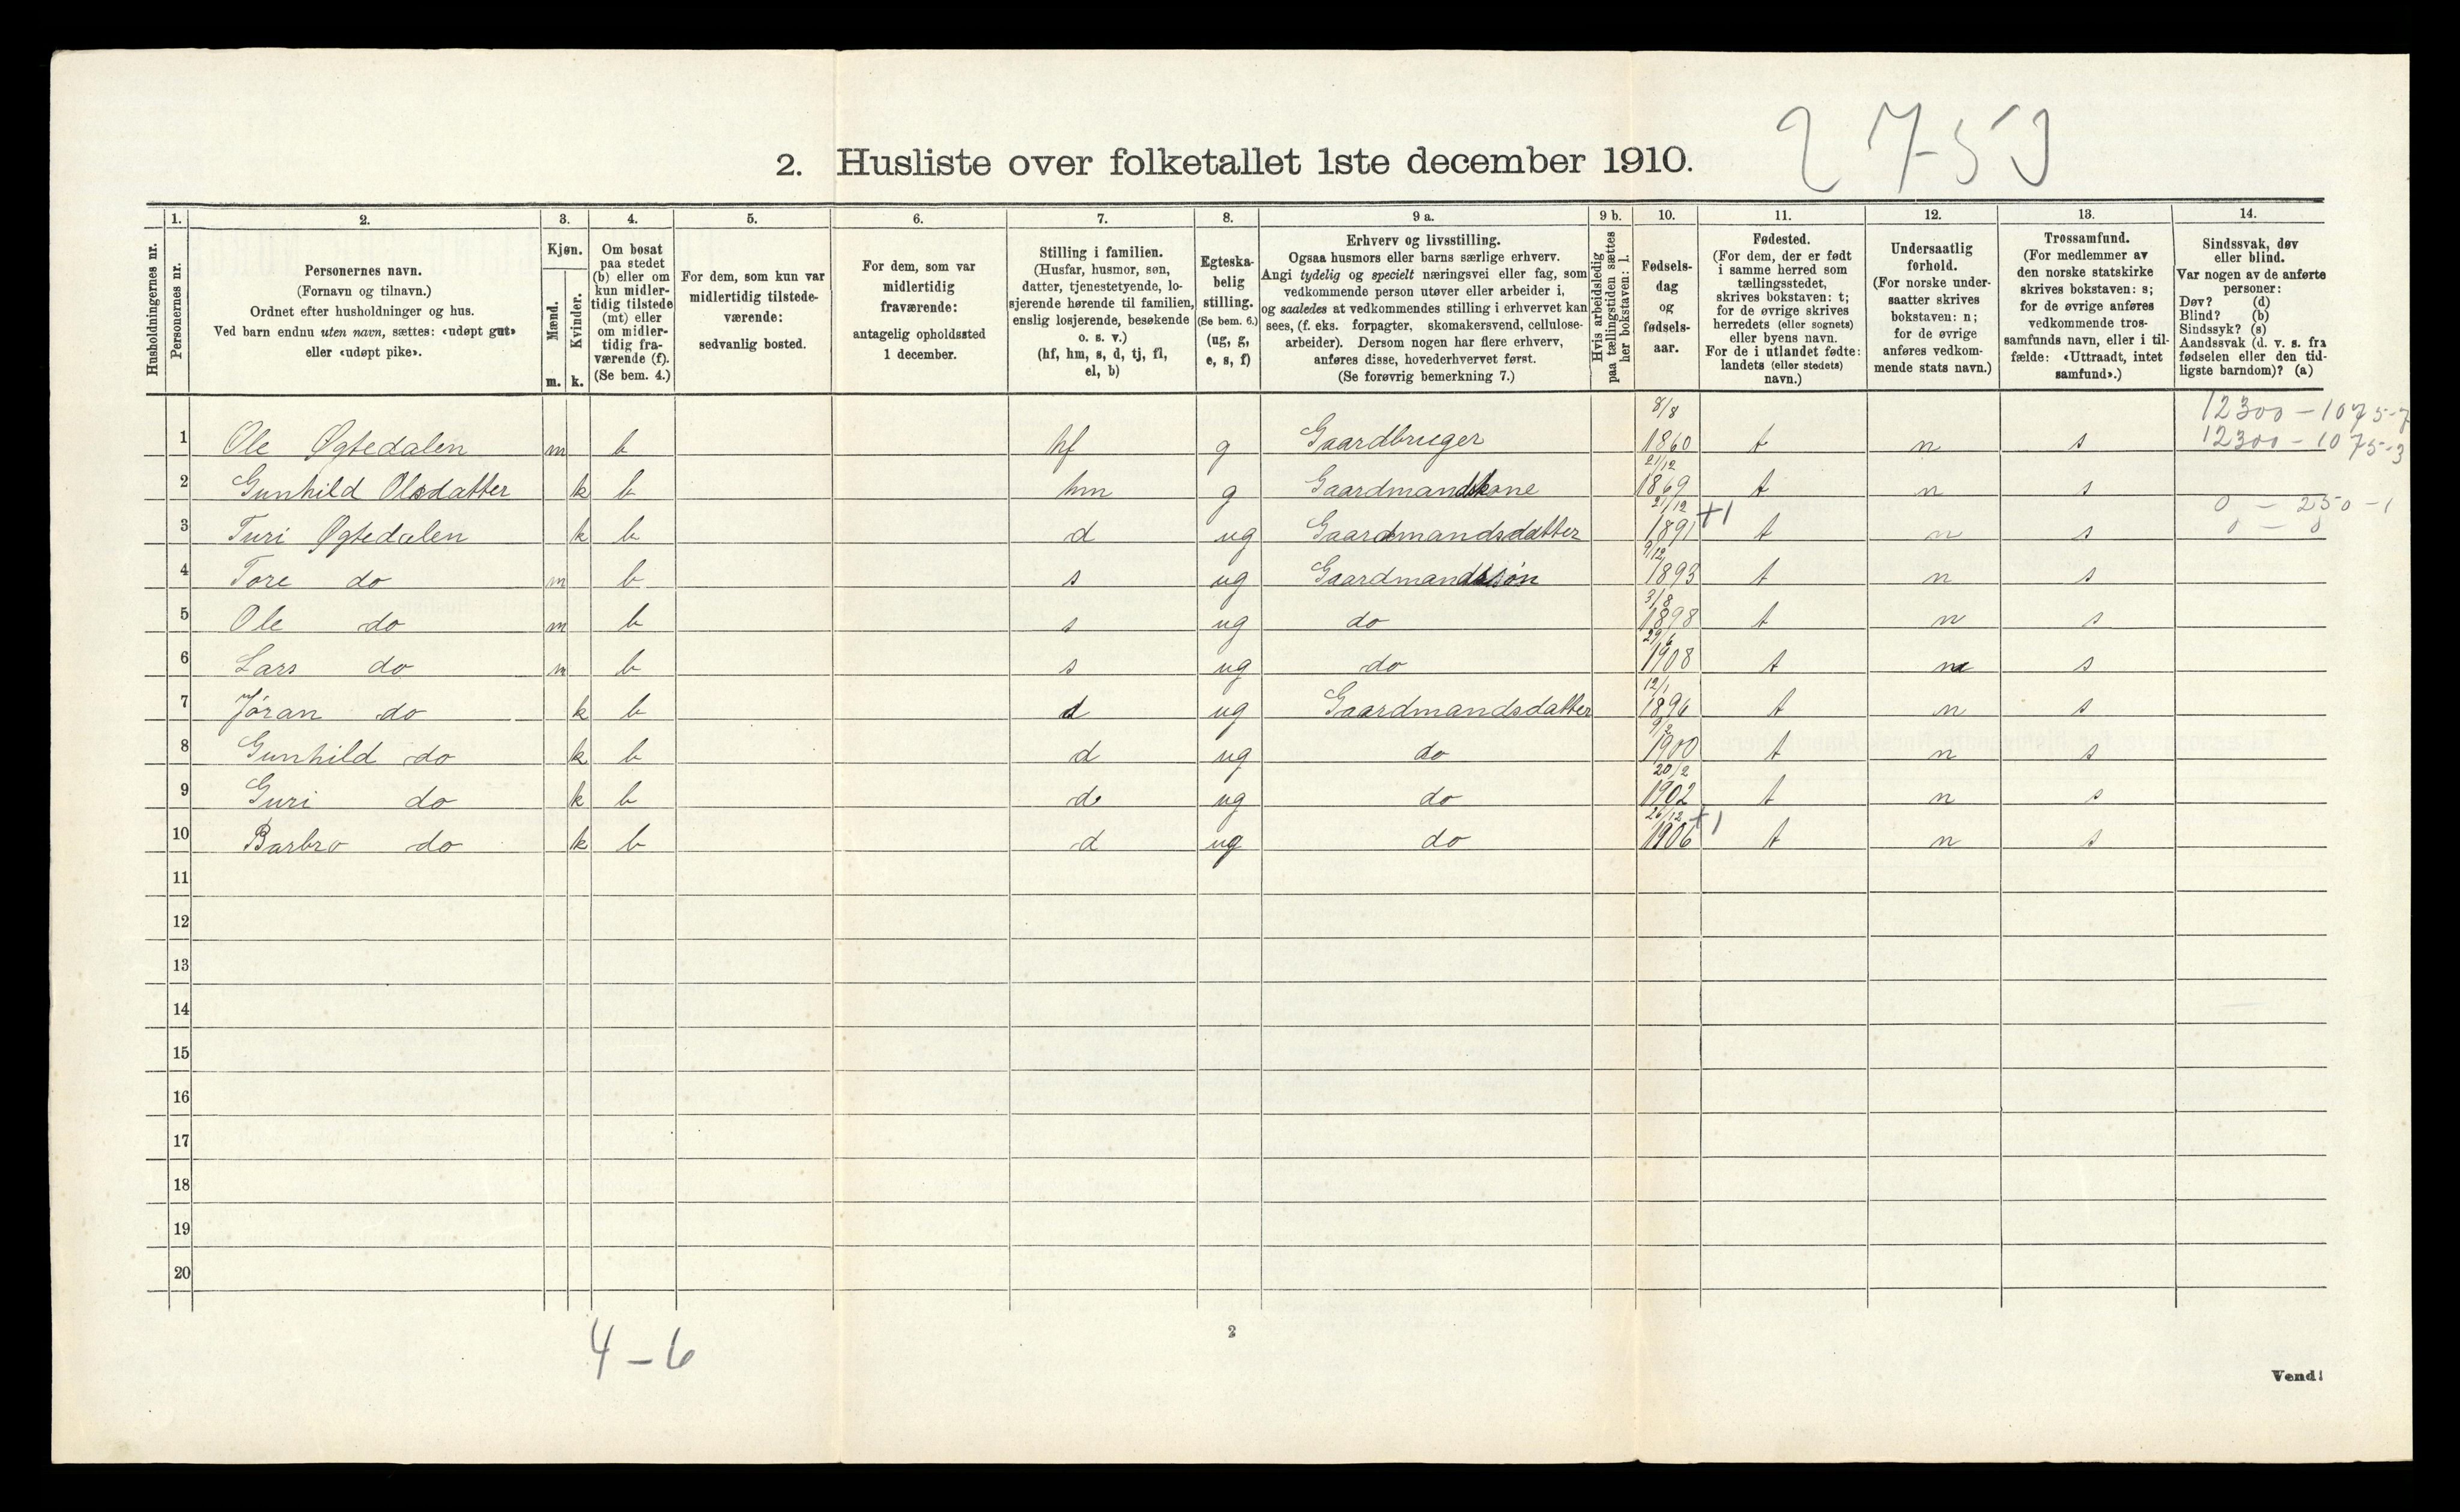 2 7-53
2. Husliste over folketallet 1ste december 1910.
Husholdningernes nr.
1. Personernes nr.
2. Personernes navn. (Fornavn og tilnavn.) Ordnet efter husholdninger og hus. Ved barn endnu uten navn, sættes: «udøpt gut» eller «udøpt pike».
3. Kjøn. Mænd. m. Kvinder. k.
4. Om bosat paa stedet (b) eller om kun midler-tidig tilstede (mt) eller om midler-tidig fra-værende (f). (Se bem. 4.)
5. For dem, som kun var midlertidig tilstede-værende: sedvanlig bosted.
6. For dem, som var midlertidig fraværende: antagelig opholdssted 1 december.
7. Stilling i familien. (Husfar, husmor, søn, datter, tjenestetyende, lo-sjerende hørende til familien, enslig losjerende, besøkende o. s. v.) (hf, hm, s, d, tj, fl, el, b)
8. Egteska-belig stilling. (Se bem. 6.) (ug, g, e, s, f)
9 a. Erhverv og livsstilling. Ogsaa husmors eller barns særlige erhverv. Angi tydelig og specielt næringsvei eller fag, som vedkommende person utøver eller arbeider i, og saaledes at vedkommendes stilling i erhvervet kan sees, (f. eks. forpagter, skomakersvend, cellulose-arbeider). Dersom nogen har flere erhverv, anføres disse, hovederhvervet først. (Se forøvrig bemerkning 7.)
9 b. Hvis arbeidsledig paa tællingstiden sættes her bokstaven: l.
10. Fødsels-dag og fødsels-aar.
11. Fødested. (For dem, der er født i samme herred som tællingsstedet, skrives bokstaven: t; for de øvrige skrives herredets (eller sognets) eller byens navn. For de i utlandet fødte: landets (eller stedets) navn.)
12. Undersaatlig forhold. (For norske under-saatter skrives bokstaven: n; for de øvrige anføres vedkom-mende stats navn.)
13. Trossamfund. (For medlemmer av den norske statskirke skrives bokstaven: s; for de øvrige anføres vedkommende tros-samfunds navn, eller i til-fælde: «Uttraadt, intet samfund».)
14. Sindssvak, døv eller blind. Var nogen av de anførte personer: Døv? (d) Blind? (b) Sindssyk? (s) Aandssvak (d. v. s. fra fødselen eller den tid-ligste barndom)? (a)
12300 - 1075-7
1 Ole Øgtedalen m b hf g Gaardbruger 8/8 1860 t n s 12300 - 1075-3
2 Gunhild Olsdatter k b hm g Gaardmandskone 21/12 1869 t n s
0 - 250 - 1
3 Turi Øgtedalen k b d ug Gaardmandsdatter 21/12 1891 +1 t n s 0 - 0
4 Tore do m b s ug Gaardmandssøn 9/12 1893 t n s
5 Ole do m b s ug do 3/8 1898 t n s
6 Lars do m b s ug do 29/6 1908 t n s
7 Jøran do k b d ug Gaardmandsdatter 12/1 1896 t n s
8 Gunhild do k b d ug do 9/2 1900 t n s
9 Guri do k b d ug do 20/2 1902 t n s
10 Barbro do k b d ug do 26/12 1906 +1 t n s
11
12
13
14
15
16
17
18
19
20
4-6
2
Vend!